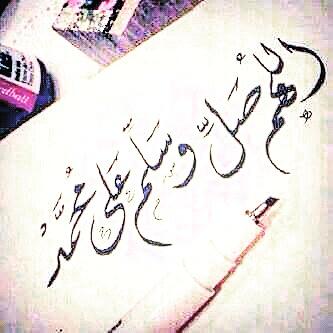 اللهم صَلِّ وسَلِّم عَلَى مُحَمَّد